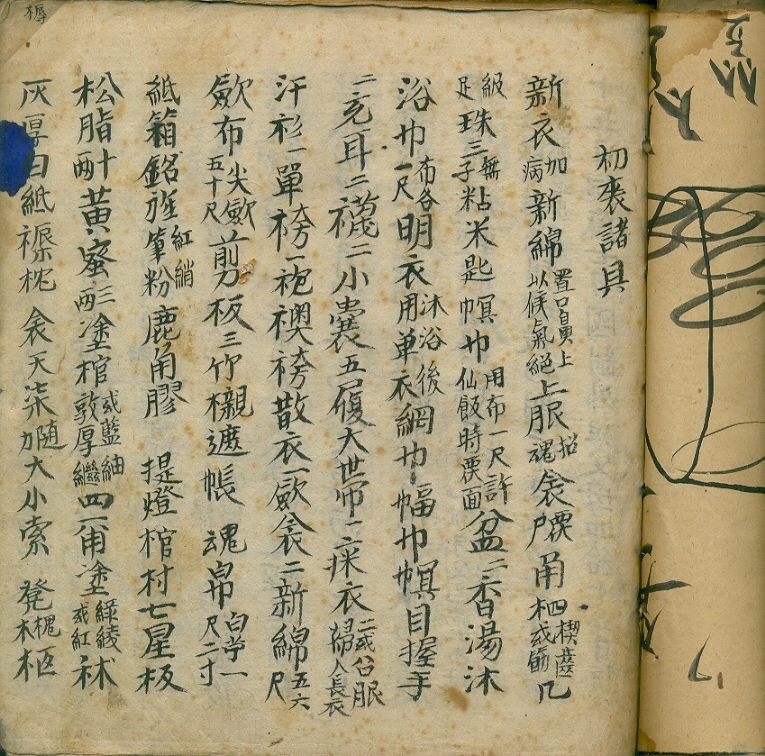 初喪諸具
新衣加病新綿置口鼻上以候氣絕上服招魂衾用覆尸角柶四或楔齒節几
級足珠三無子粘米匙幎巾用布一尺許仙飯時覆面盆二香湯沐
浴巾布各一尺明衣沐浴後用單衣網巾幅巾幎目握手
二充耳二襪二小囊五履大世帶二深衣二或公服婦人長衣
汗衫一單袴一袍襖袴散衣一歛衾二新綿五六尺
歛布五十尺尖歛剪板三竹櫬遮帳魂帛白苧一尺二寸
紙箱銘旌紅綃筆粉鹿角膠 提燈棺材七星板
松脂 黃蜜 塗棺或藍紬敦厚繼四 角塗綠綾或紅秫
灰厚白紙褥枕衾天柒 隨加大小索凳槐木柩
褥